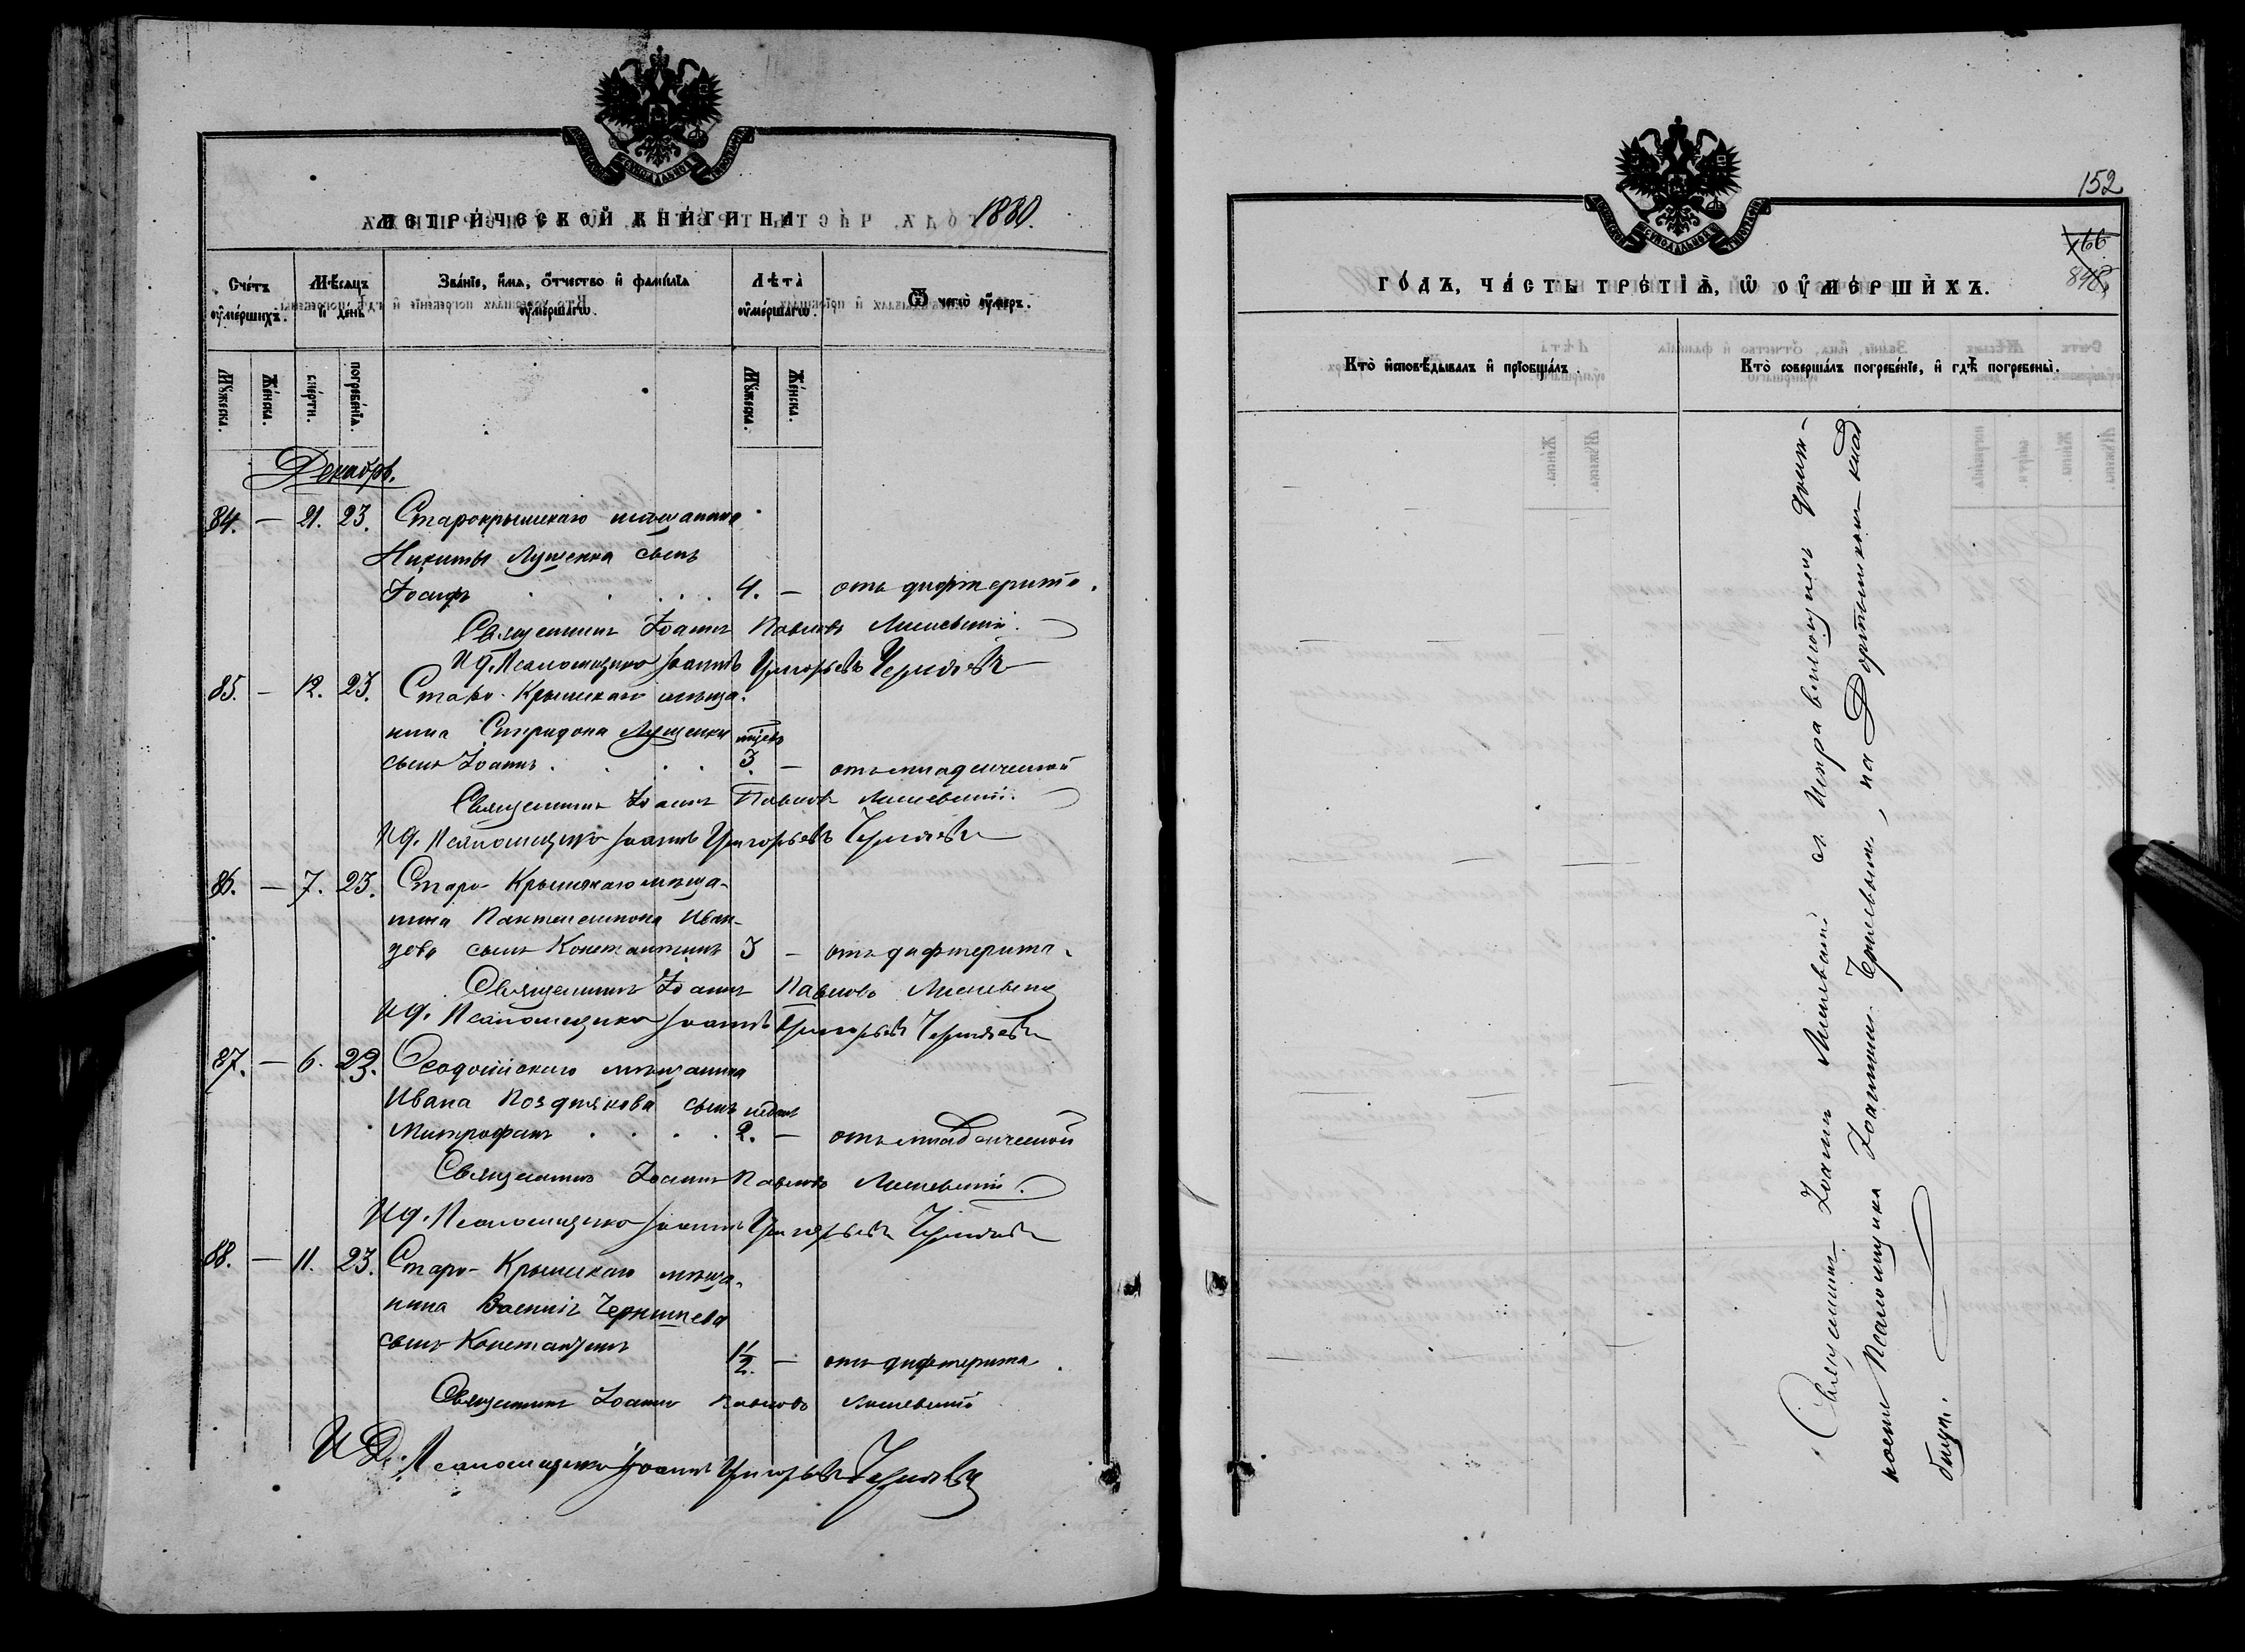 МЕТРИЧЕСКОЙ КНИГИ НА 1880.
Счетъ оумершихъ.
Мѣсяцъ и день
Званіе, имя, отчество и фамилія оумершагѡ.
Лѣта оумершагѡ.
Ѿ чегѡ оумеръ.
Мꙋжеска.
Женска.
смерти.
погребенія.
Мꙋжеска.
Женска.
Декабрь.
84. — 21. 23. Старокрымскаго мѣщанина
Никиты Луценка сынъ
Іосифъ 4. — отъ дифтерита.
Священникъ Іоаннъ Павловъ
И д. Псаломщика Іоаннъ Григорьевъ Черняевъ
85. — 12. 23. Старо-Крымскаго мѣща-
нина Спиридона Луценки мѣсяц
сынъ Іоаннъ 3. — отъ младенческой
Священникъ Іоаннъ Павловъ
И д. Псаломщика Іоаннъ Григорьевъ Черняевъ
86. — 7. 23. Старо-Крымскаго мѣща-
нина Пантелеимона Иван-
зова сынъ Константинъ 3 — отъ дифтерита.
Священникъ Іоаннъ Павловъ
И д. Псаломщика Іоаннъ Григорьевъ Черняевъ
87. — 6. 23. Ѳеодосійскаго мѣщанина
Ивана Позднякова сынъ недѣл
Митрофанъ 2. — отъ младенческой
Священникъ Іоаннъ Павловъ
И д. Псаломщика Іоаннъ Григорьевъ Черняевъ
88. — 11. 23. Старо-Крымскаго мѣща-
нина Василія Чернышева
сынъ Константинъ 1½. — отъ дифтерита.
Священникъ Іоаннъ Павловъ
И Д. Псаломщика Іоаннъ Григорьевъ Черняевъ
152
166
848
ГОДЪ, ЧАСТЬ ТРЕТІѦ, Ѡ ОУМЕРШИХЪ.
Кто исповѣдывалъ и пріобщалъ.
Кто совершалъ погребеніе, и гдѣ погребены.
Священникъ Іоаннъ съ исправляющемъ долж-
ность Псаломщика Іоанномъ Черняевымъ, на клад
бищѣ.